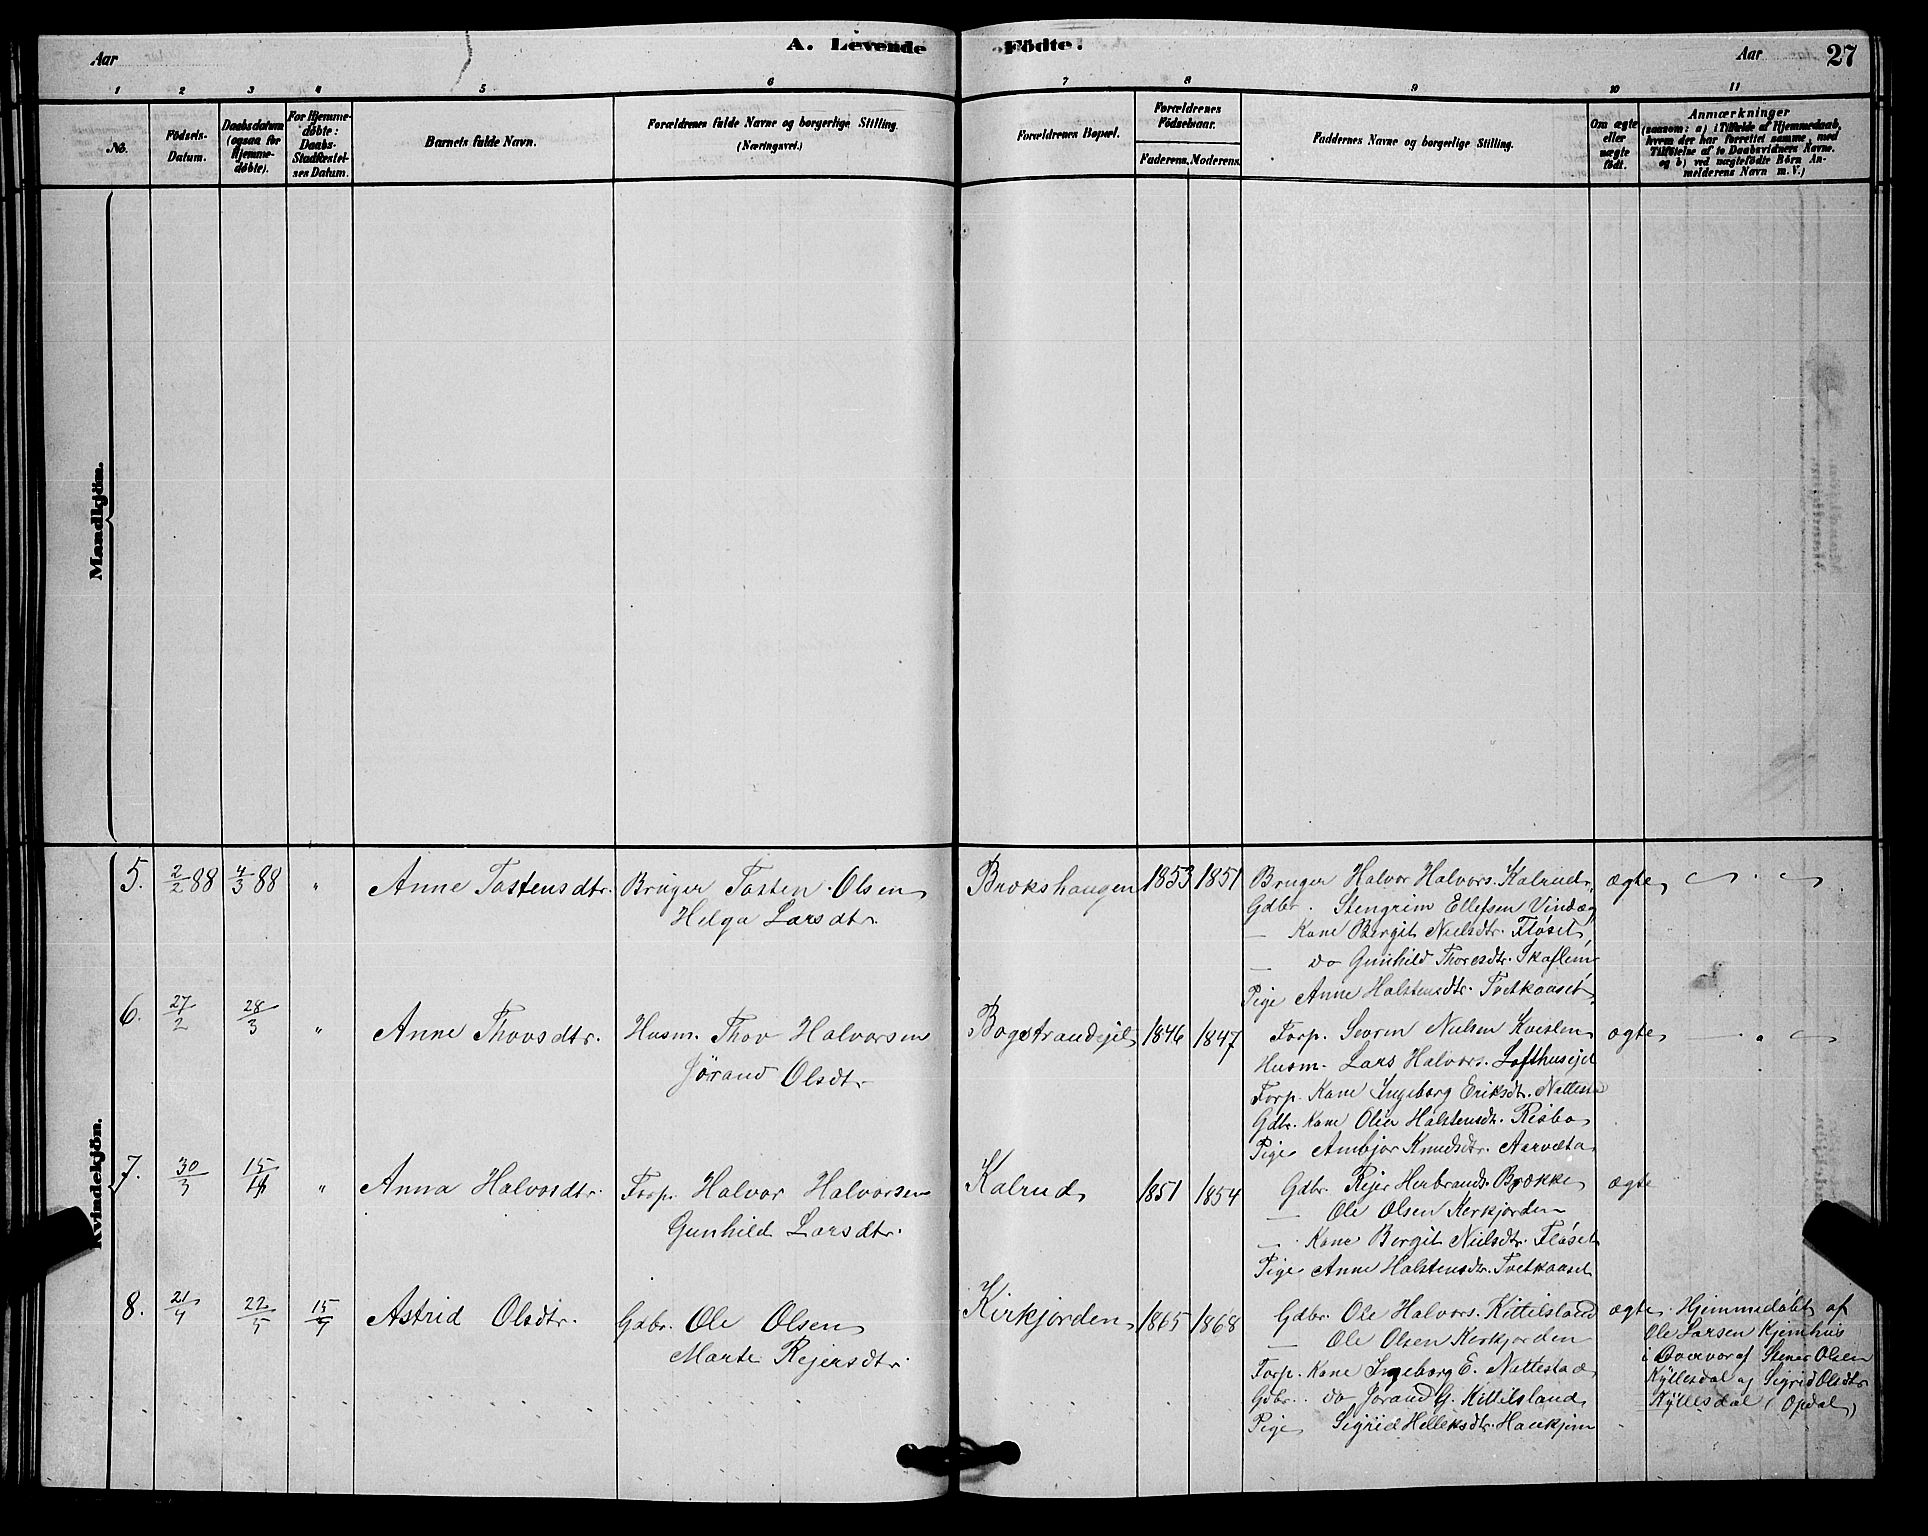 A. Levende Födte.
Aar
Aar
27
1 2 3 4 5 6 7 8 9 10 11
No.
Födsels-Datum.
Daabsdatum (ogsaa for Hjemmedöbte).
For Hjemmedöbte: Daabs-Stadfæstelses Datum.
Barnets fulde Navn.
Forældrenes fulde Navne og borgerlige Stilling. (Næringsvei.)
Forældrenes Bopæl.
Forældrenes Födselsaar.
Faderens. Moderens.
Faddernes Navne og borgerlige Stilling.
Om ægte eller uægte födt.
Anmærkninger
(saasom: a) i Tilfælde af Hjemmedaab, hvem der har forrettet samme, med Tilföielse af to Daabsvidners Navne, og b) ved uægtefödte Börn Anmelderens Navn m. V.)
Mandkjön.
Kvindekjön.
5. 2/2 88 4/3 88 " Anne Tostensdtr. Bruger Tosten Olsen Brækshaugen 1853 1851 Bruger Halvor Halvors. Kalrud, ægte
Helga Larsdtr. Gdbr. Stengrim Ellefsen Vindeg
— Kone Bergit Nielsdtr. Fløset
— do Gunhild Thoresdtr. Skaflem
Pige Anne Halstensdtr. Tvetkaaset
6. 27/2 28/3 " Anne Thovsdtr. Husm. Thov Halvorsen Bogstrandejet 1846 1847 Forp. Sevrin Nielsen Kvislen ægte
Jørand Olsdtr. Husm. Lars Halvors. Lofthusejet
Forp. Kone Ingeborg Eriksdtr. Nattesta
Gdbr. Kone Olea Halstensdtr. Risbo
Pige Ambjør Knudsdtr. Aarvæta
7. 30/3 15/4 " Anna Halvorsdtr. Forp. Halvor Halvorsen Kalrud 1851 1854 Gdbr. Rejer Herbrands. Brække ægte
Gunhild Larsdtr. — Ole Olsen Kerkjorden
— Kone Bergit Nielsdtr. Fløset
Pige Anne Halstensdtr. Tvetkaaset
8. 21/4 22/5 Astrid Olsdtr. Gdbr. Ole Olsen Kirkjorden 1865 1868 Gdbr. Ole Halvors. Kittilsland ægte Hjemmedøbt af
Marte Rejersdtr. — Ole Olsen Kerkjorden Ole Larsen Kjemhus
Forp. Kone Ingeborg E. Nattestad i Overvær af Stener Olsen
Gdbr. do Jørand G. Kittilsland Kyllesdal og Sigrid Olsdtr.
Pige Sigrid Helleksdtr. Haukjem Kyllesdal (Opdal)